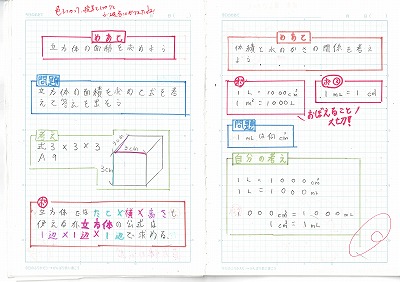 めあて
立方体の面積を求めよう
問題
立方体の面積を求めて式を考
えて答えを出そう
考え
式 3 × 3 × 3
A 9
3cm
3cm
3cm
立方体では たて×横×高さも
使えるが 立方体の公式は
1辺×1辺×1辺で求める。
めあて
体積と水のかさの関係を考え
よう
1L = 1000cm³
1m³ = 1000L
1mL = 1cm³
おぼえること!
大切!
問題
1mLは何cm³
自分の考え
1L = 1000cm³
1L = 1000mL
1000cm³ = 1000mL
1cm³ = 1mL